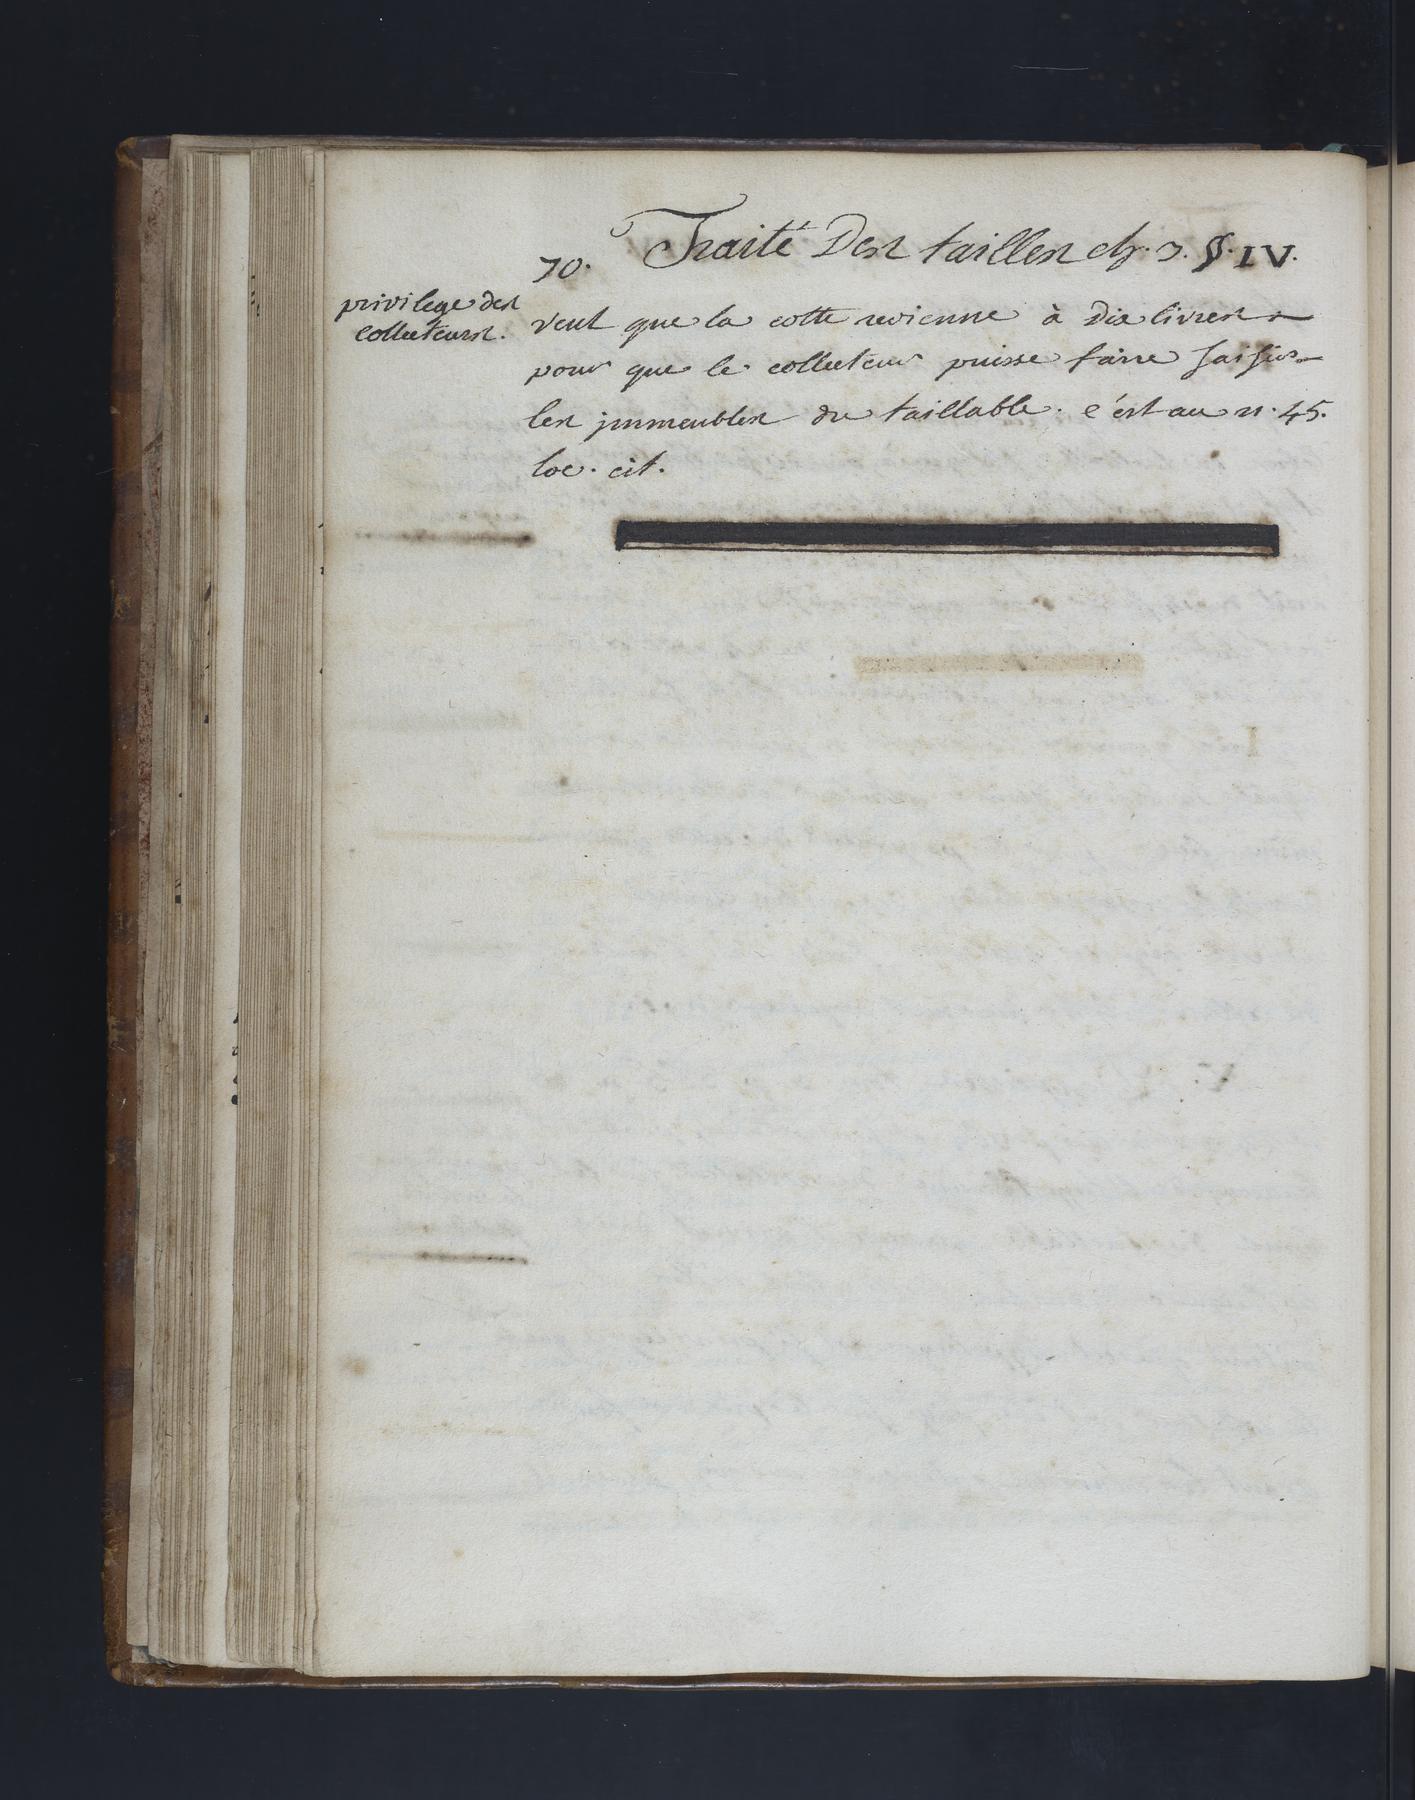 70. Traité Des tailles ch. 7. §. IV.
privilege des
collecteurs.
veut que la cotte revienne à dix livres
pour que le collecteur puisse faire saisir
les jmmeubles du taillable. c'est au n. 45.
loc. cit.